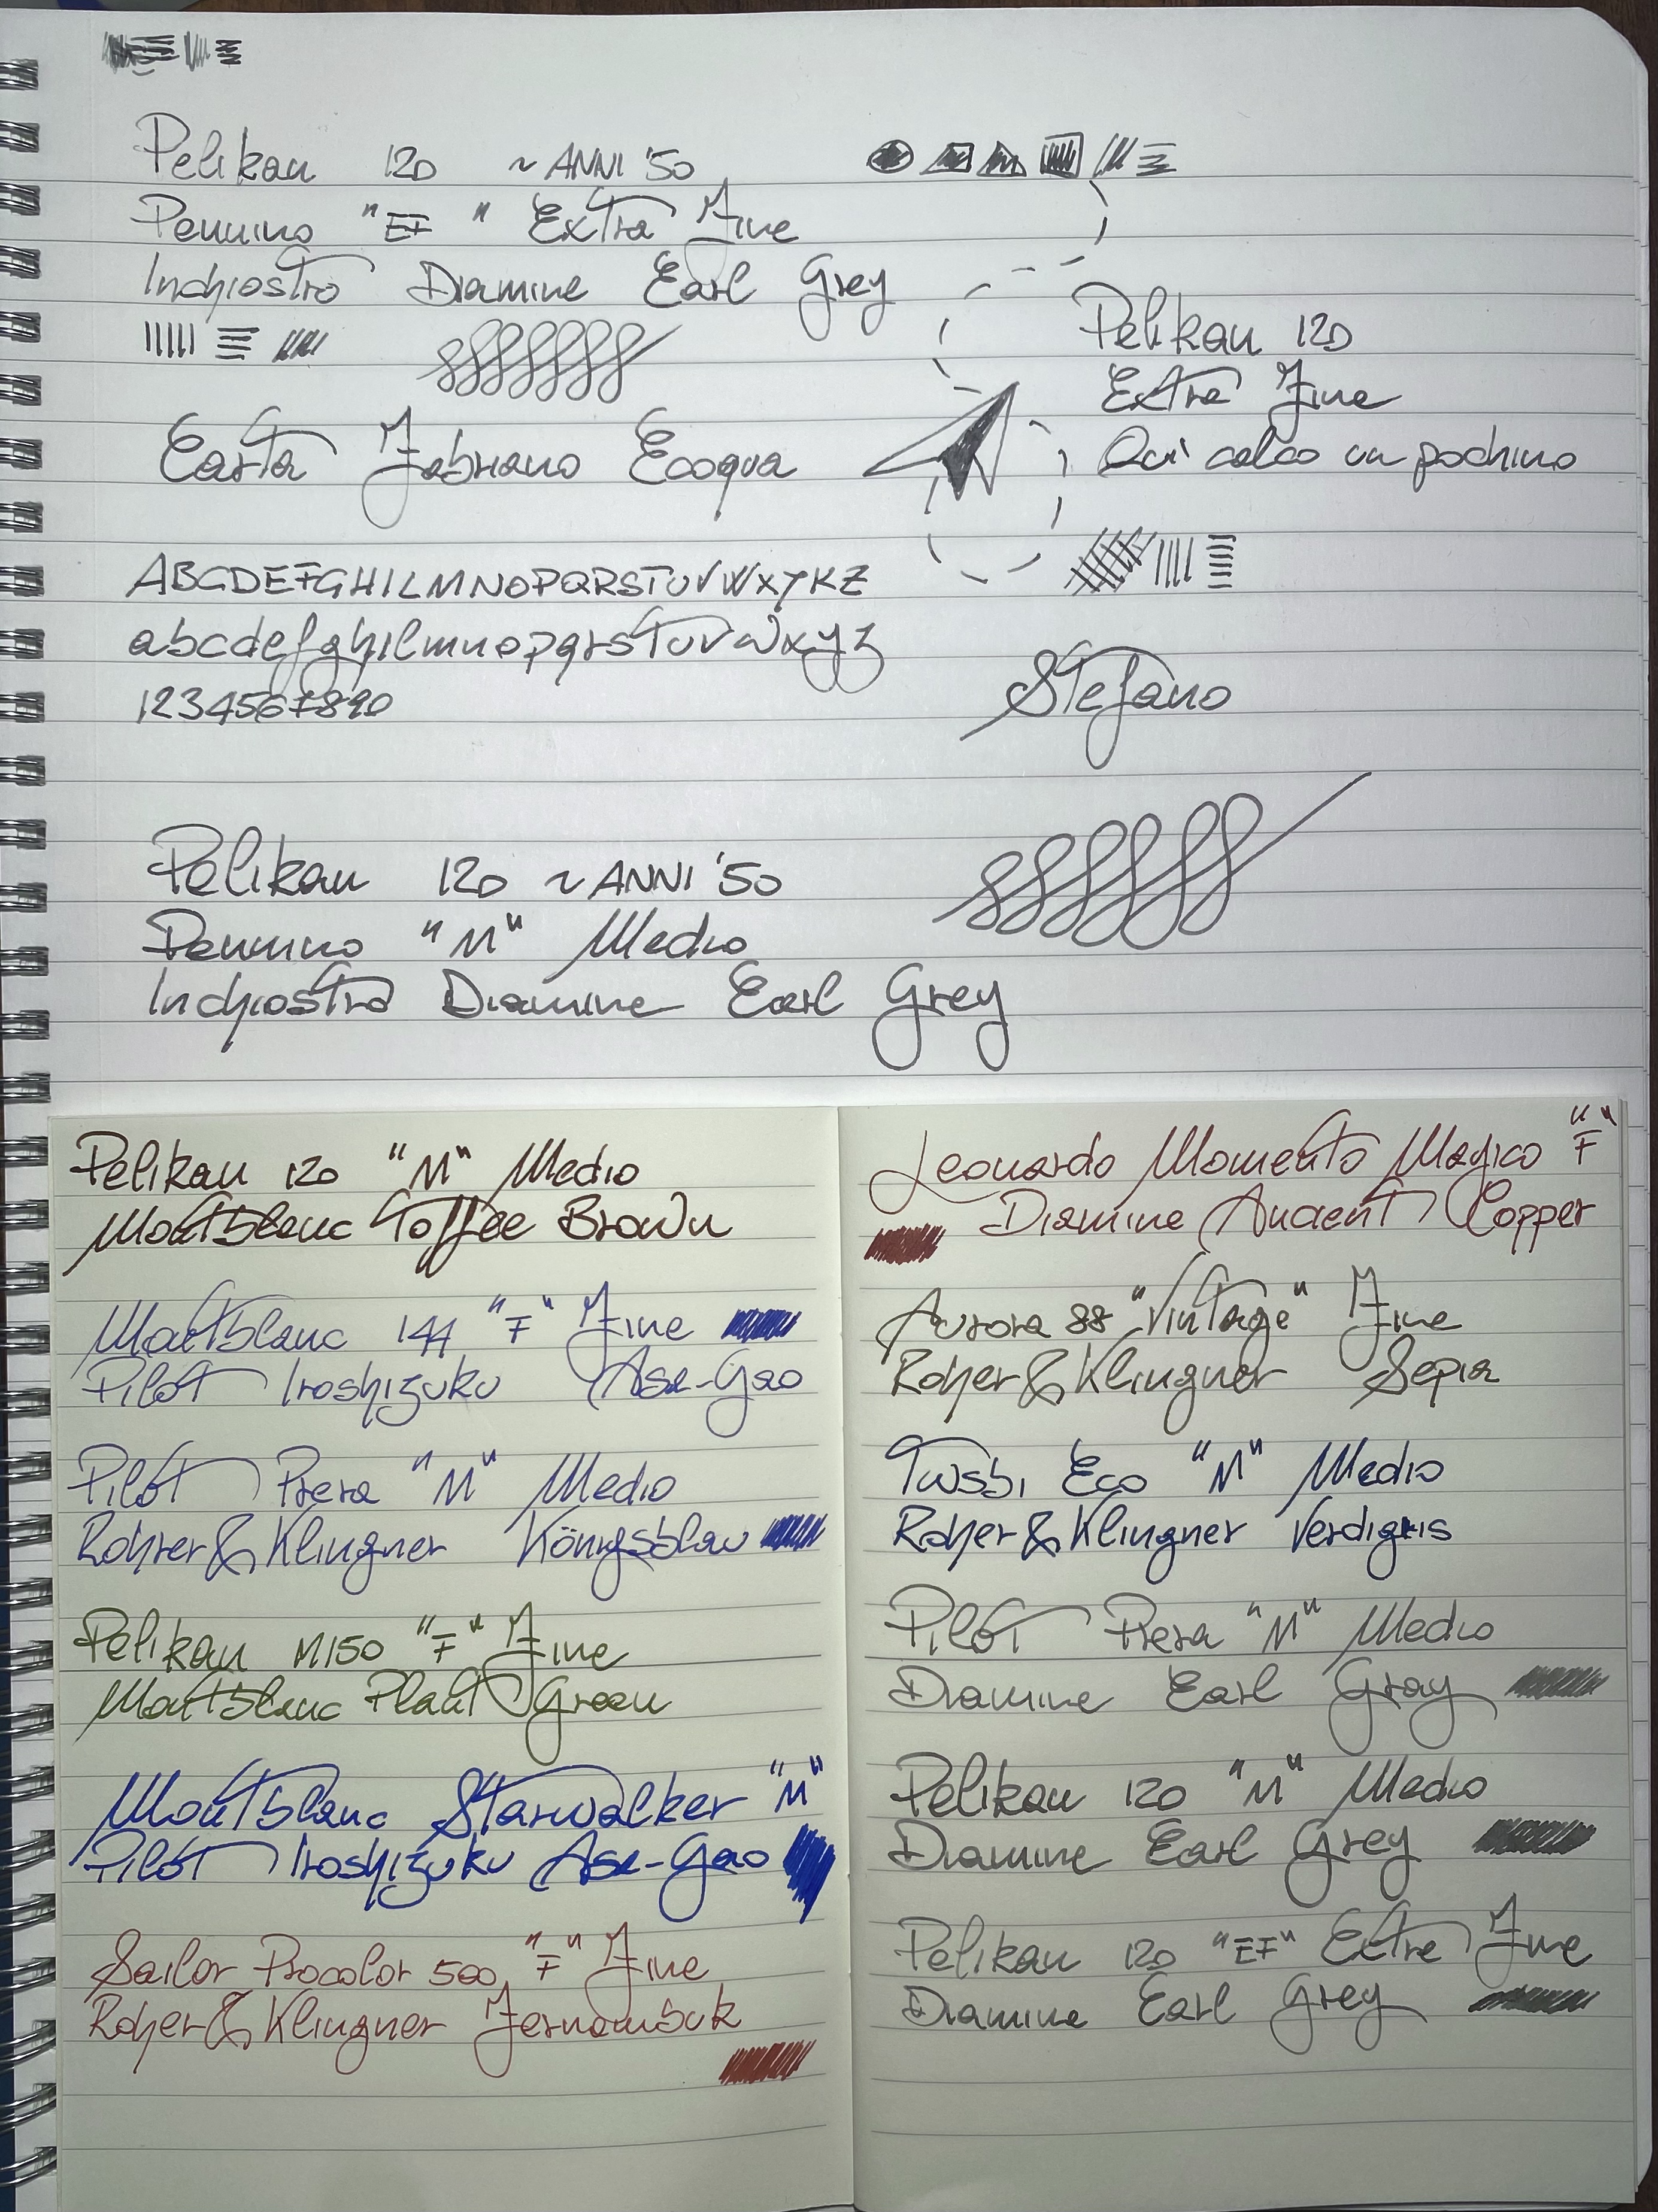 Pelikan 120 ~ANNI '50
Pennino "EF" Extra Fine
Inchiostro Diamine Earl Grey
Pelikan 120
Extra Fine
Qui calco un pochino
Carta Fabriano Ecoqua
ABCDEFGHILMNOPQRSTUVWXYKZ
abcdefghilmnopqrstuvwxyz
1234567890
Stefano
Pelikan 120 ~ANNI '50
Pennino "M" Medio
Inchiostro Diamine Earl Grey
Pelikan 120 "M" Medio
Montblanc Toffee Brown
Montblanc 144 "F" Fine
Pilot Iroshizuku Asa-Gao
Pilot Prera "M" Medio
Rohrer & Klingner Königsblau
Pelikan M150 "F" Fine
Montblanc Plant Green
Montblanc Starwalker "M"
Pilot Iroshizuku Asa-Gao
Sailor Procolor 500 "F" Fine
Roher & Klingner Fernambuk
Leonardo Momento Magico "F"
Diamine Ancient Copper
Aurora 88 "Vintage" Fine
Roher & Klingner Sepia
Twsbi Eco "M" Medio
Roher & Klingner Verdigris
Pilot Prera "M" Medio
Diamine Earl Gray
Pelikan 120 "M" Medio
Diamine Earl Grey
Pelikan 120 "EF" Extra Fine
Diamine Earl Grey